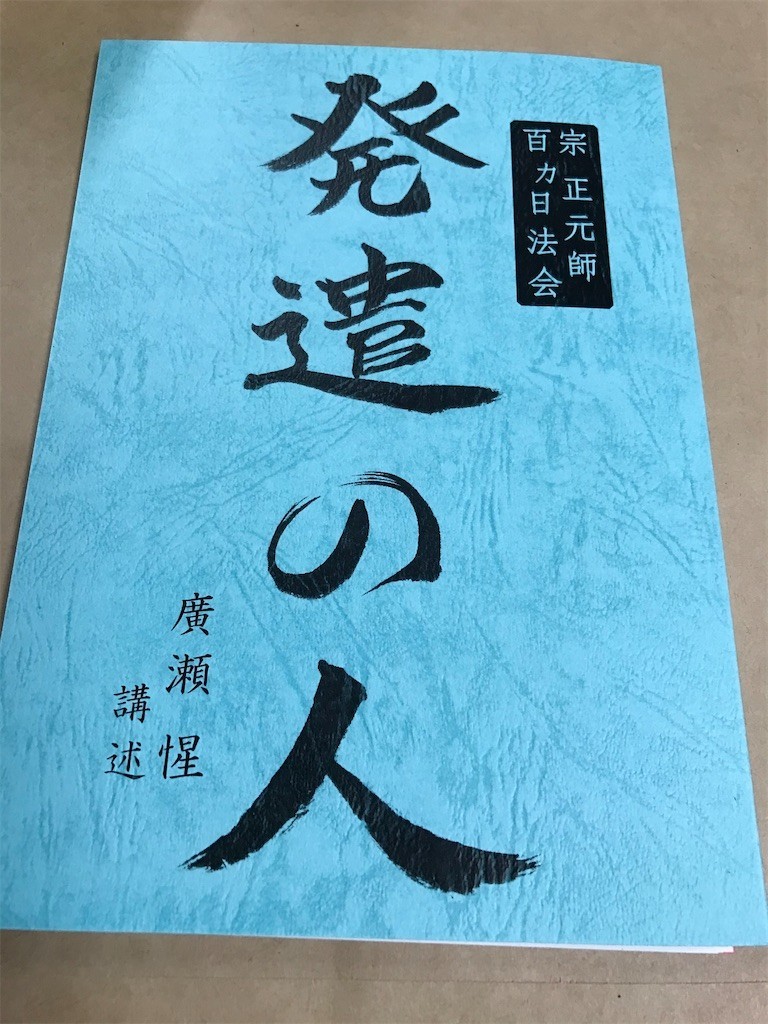 宗 正元師
百カ日法会
発遣の人
廣瀬 惺
講述